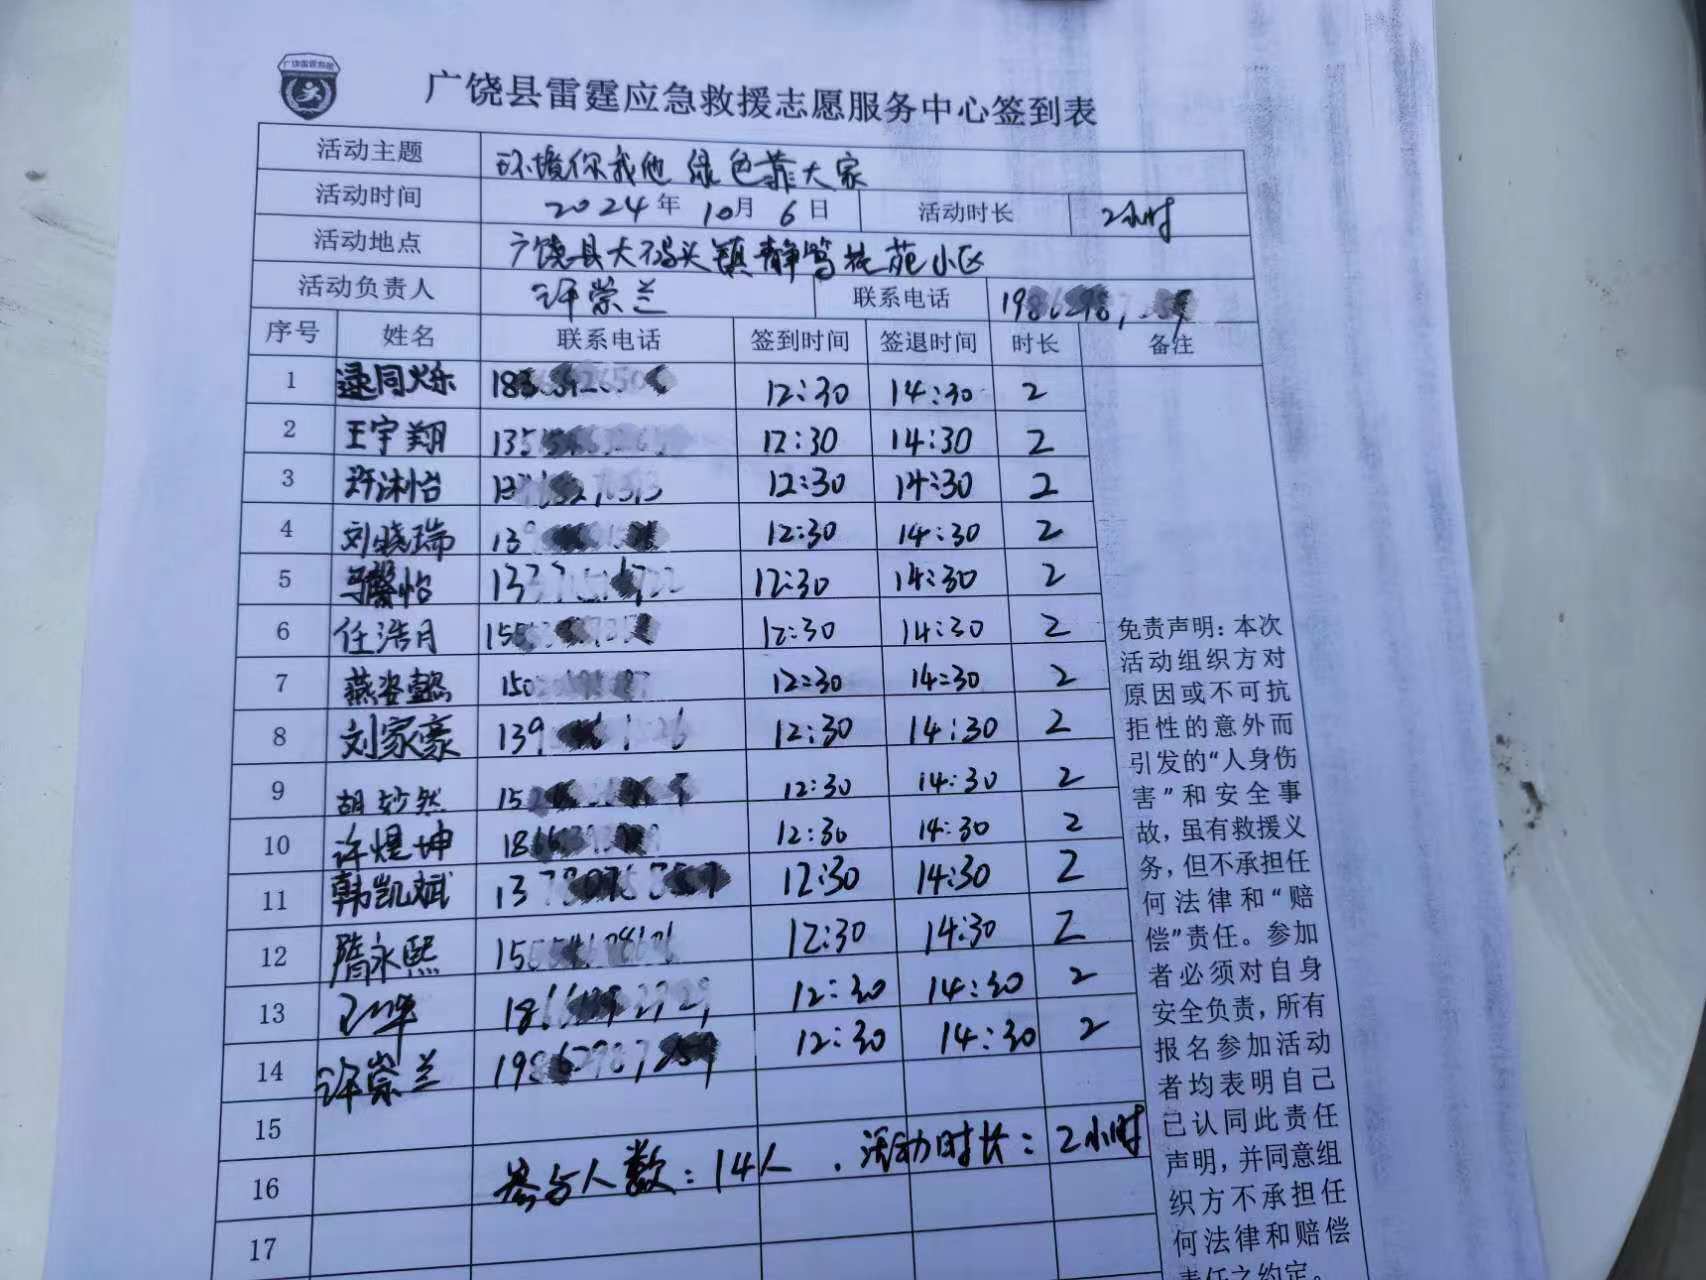 广饶县雷霆应急救援志愿服务中心签到表
活动主题 环境你我他 绿色靠大家
活动时间 2024年 10月 6日 活动时长 2小时
活动地点 广饶县大码头镇静 苑小区
活动负责人 许崇兰 联系电话
序号 姓名 联系电话 签到时间 签退时间 时长 备注
1 逯同烁 12:30 14:30 2
2 王宇翔 12:30 14:30 2
3 许沐怡 12:30 14:30 2
4 刘晓瑞 12:30 14:30 2
5 马馨怡 12:30 14:30 2
6 任浩月 12:30 14:30 2
7 燕姿懿 12:30 14:30 2
8 刘家豪 12:30 14:30 2
9 胡妙然 12:30 14:30 2
10 许煜坤 12:30 14:30 2
11 韩凯斌 12:30 14:30 2
12 隋永熙 12:30 14:30 2
13 12:30 14:30 2
14 许崇兰 12:30 14:30 2
15
16 参与人数:14人 . 活动时长:2小时
17
免责声明:本次
活动组织方对
原因或不可抗
拒性的意外而
引发的“人身伤
害”和安全事
故,虽有救援义
务,但不承担任
何法律和“赔
偿”责任。参加
者必须对自身
安全负责,所有
报名参加活动
者均表明自己
已认同此责任
声明,并同意组
织方不承担任
何法律和赔偿
责任之约定。